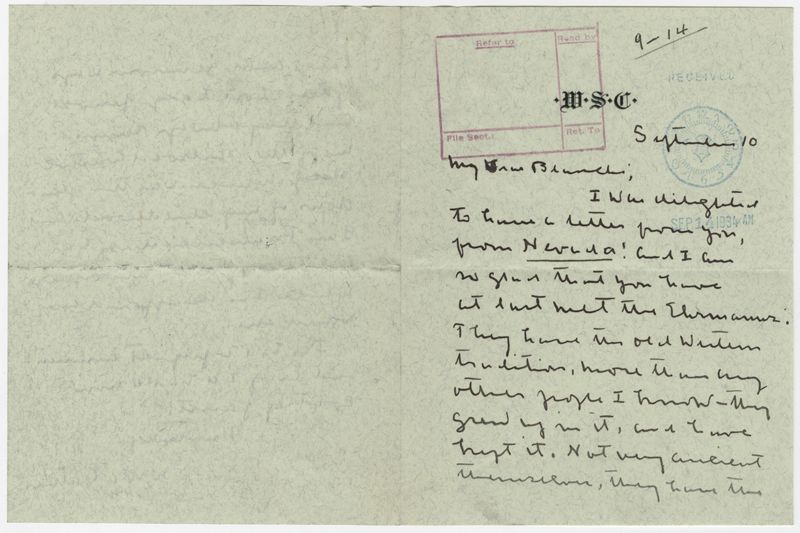 9-14
Refer to
Read by
RECEIVED
·W·S·C·
File Sect.:
Ret. To
September 10
My Dear Blanche,
I was delighted
SEP 14 1934 AM
to have a letter from you,
from Nevada! and I am
so glad that you have
at last met the Ehrmanns.
They have the old Western
tradition, more than any
other people I know - they
grew up in it, and have
kept it. Not very ancient
themselves, they have the